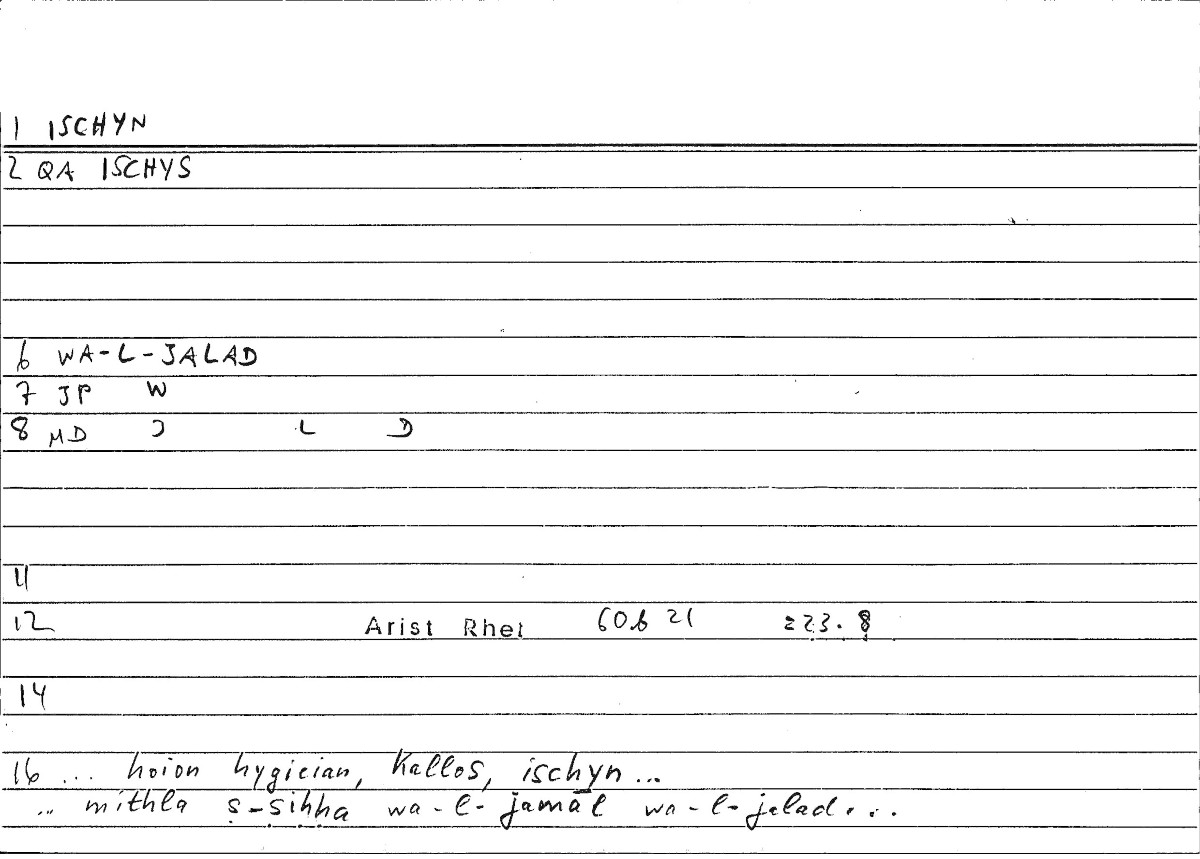 1 ISCHYN
2 QA ISCHYS
6 WA-L-JALAD
7 JP W
8 MD J L D
11
12 Arist Rhet 60b 21 223.8
14
16 ... hoion hygieian, kallos, ischyn...
... mithla ṣ-ṣiḥḥa wa-l-jamāl wa-l-jalad...